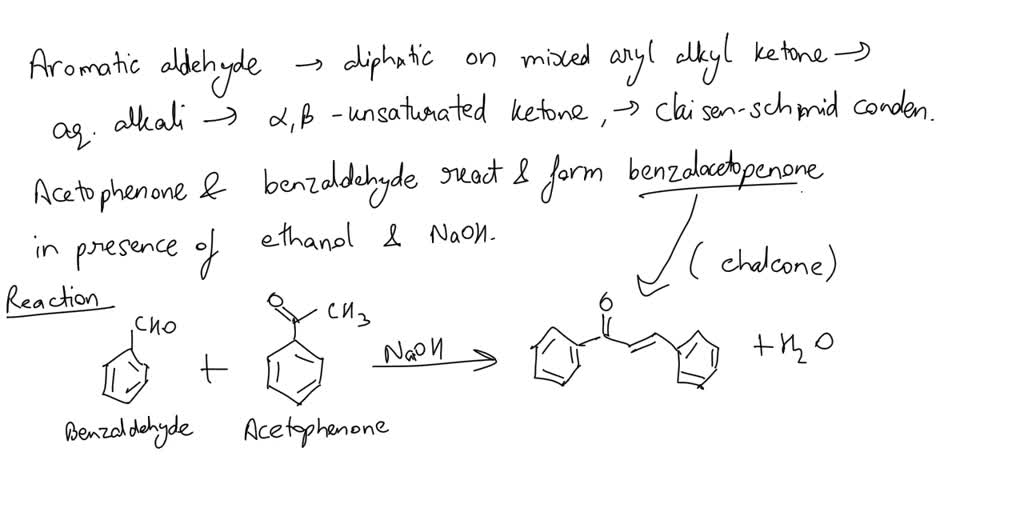 Aromatic aldehyde → aliphatic on mixed aryl alkyl ketone →
aq. alkali → α,β -unsaturated ketone, → claisen-schmid conden.
Acetophenone & benzaldehyde react & form benzalacetopenone
in presence of ethanol & NaOH.
(chalcone)
Reaction
CHO
+
O
CH3
NaOH
O
+H2O
Benzaldehyde
Acetophenone